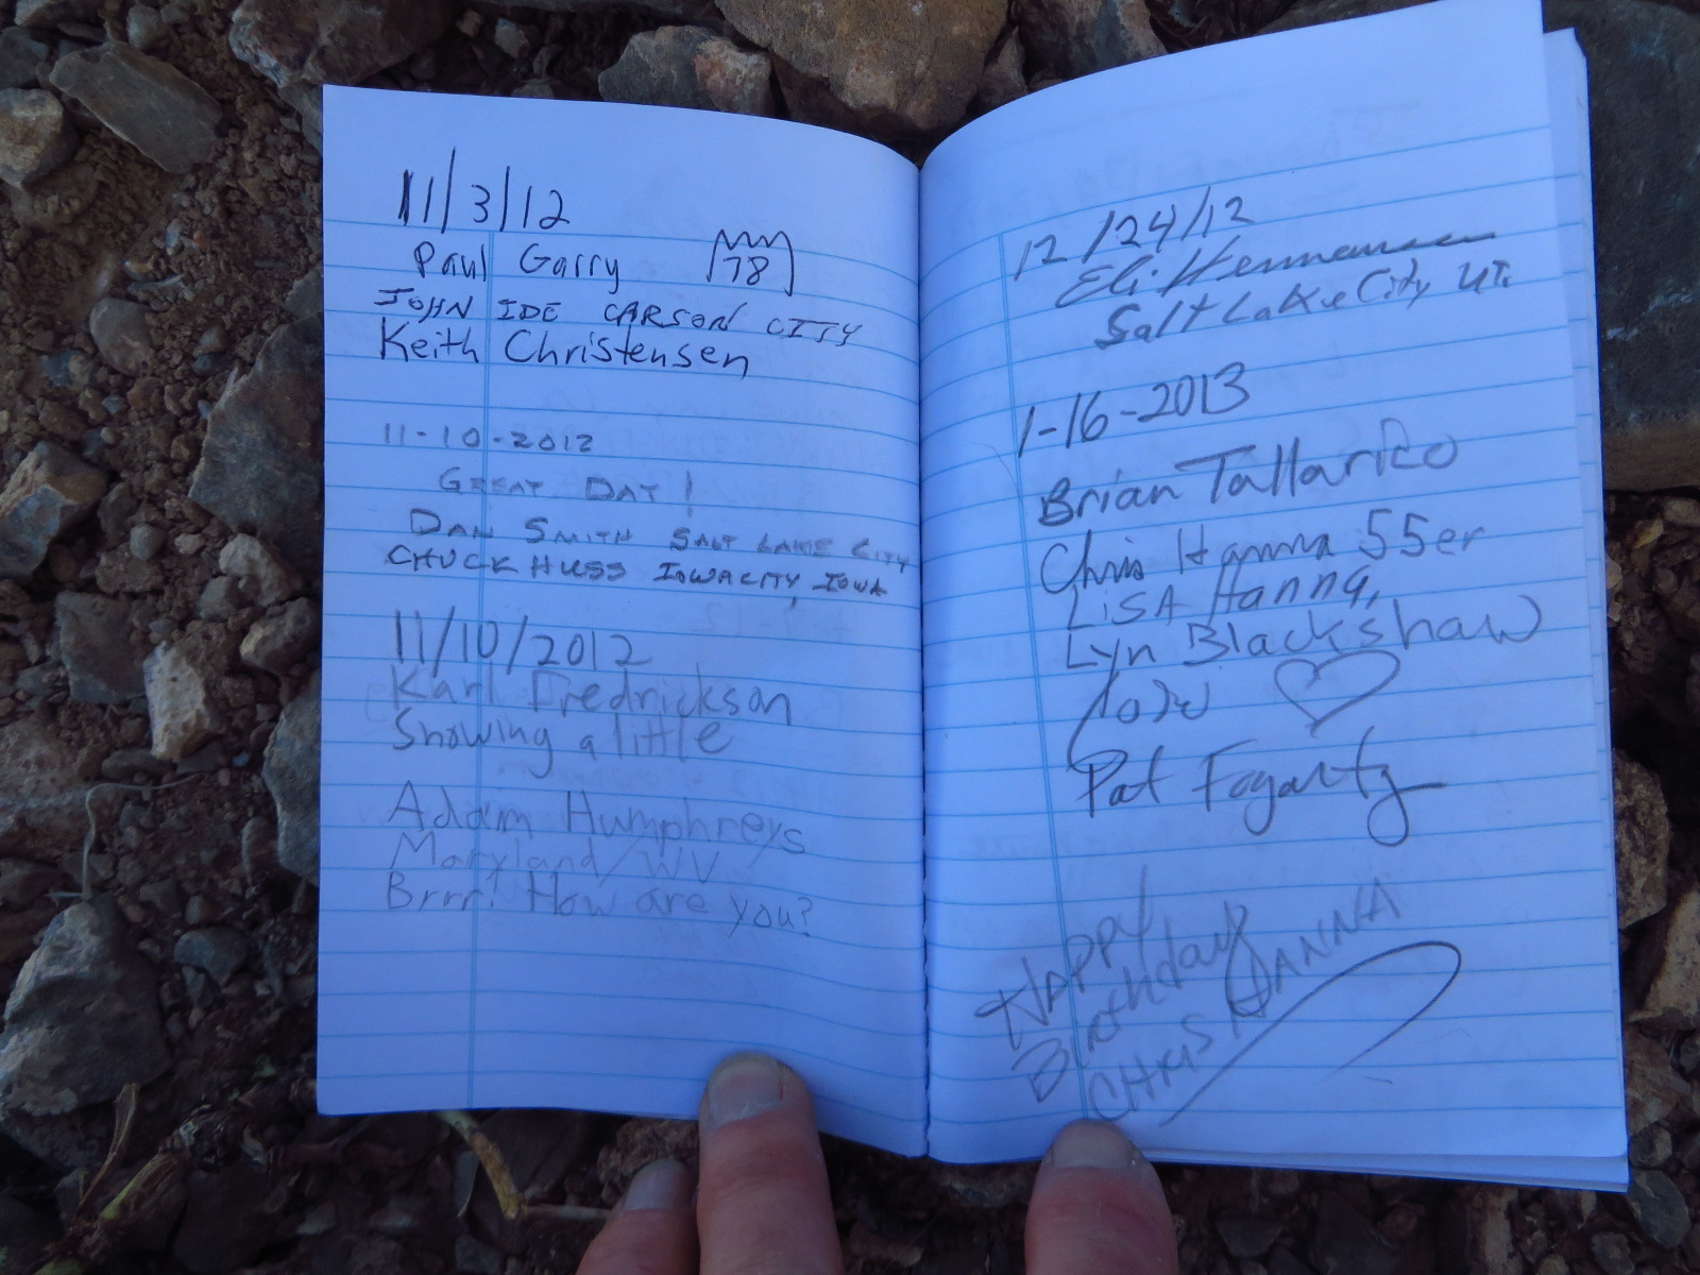 11/3/12
Paul Garry 78
JOHN IDE CARSON CITY
Keith Christensen
11-10-2012
GREAT DAY!
DAN SMITH SALT LAKE CITY
CHUCK HUSS IOWA CITY, IOWA
11/10/2012
Karl Fredrickson
Snowing a little
Adam Humphreys
Maryland/WV
Brrr! How are you?
12/24/12
Eli Hermansen
Salt Lake City UT.
1-16-2013
Brian Tallarico
Chris Hanna 55er
LiSA Hanna,
Lyn Blackshaw
Pat Fogarty
HAPPY
Birthday
CHRIS HANNA